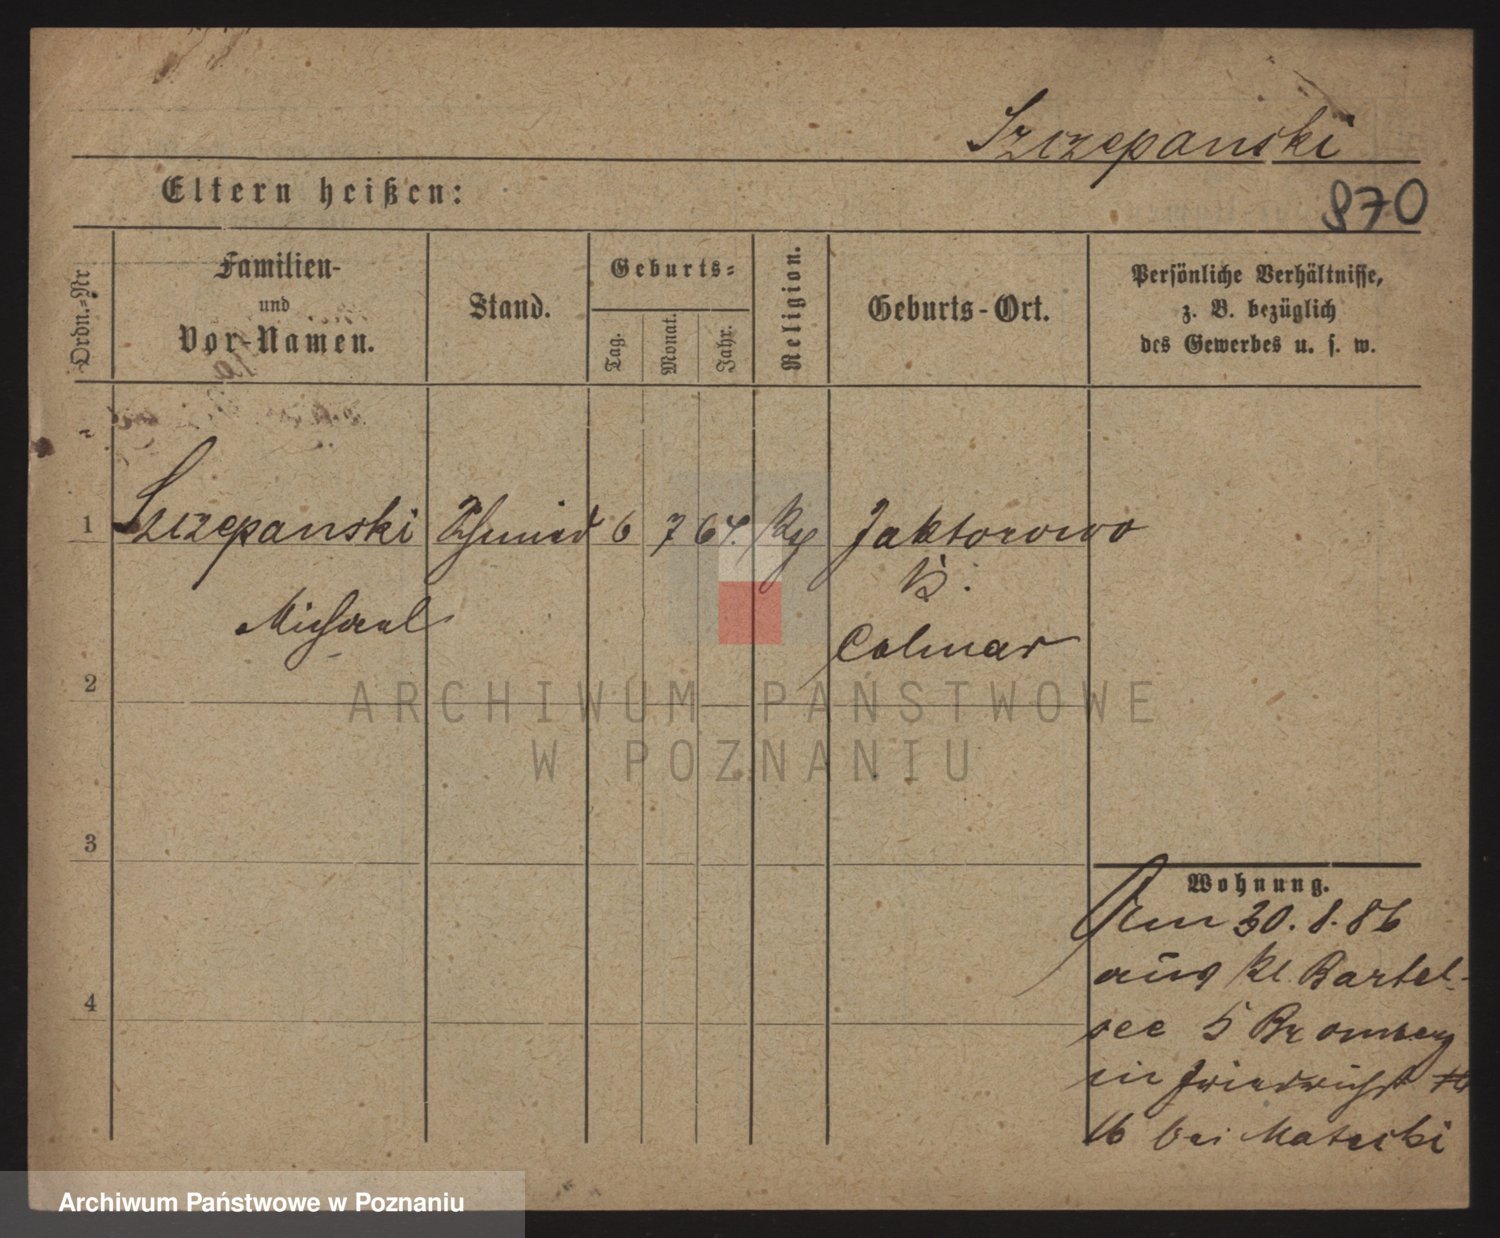 Szczepanski
Eltern heißen:
870
Ordn.-Nr
Familien-
und
Vor-Namen.
Stand.
Geburts-
Tag.
Monat.
Jahr.
Religion.
Geburts-Ort.
Persönliche Verhältnisse,
z. B. bezüglich
des Gewerbes u. s. w.
1 Szczepanski Schmied 6 7 64. Jaktorowo
K.
Michael Colmar
2
ARCHIWUM PAŃSTWOWE
W POZNANIU
3
Wohnung.
Am 30. 8. 86
aus Kl. Bartel-
see b Bromberg
in Friedrichst
16 bei Mateski
4
Archiwum Państwowe w Poznaniu